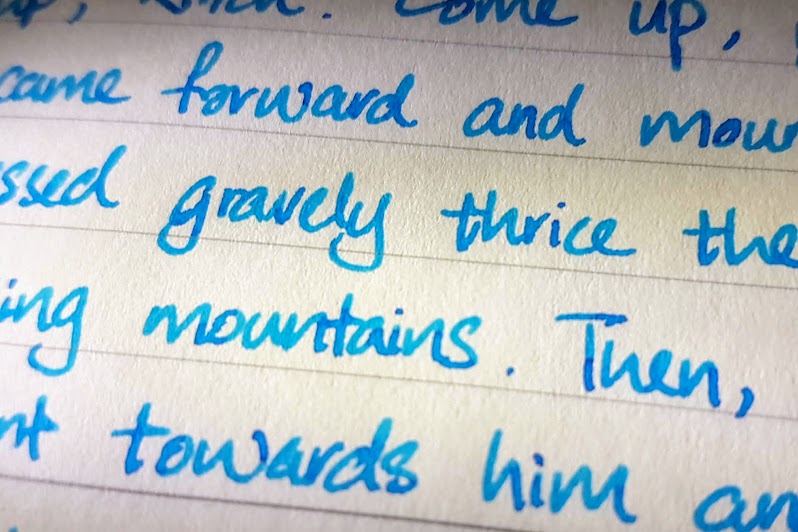 Come up,
came forward and moun
ssed gravely thrice the
ing mountains. Then,
nt towards him an